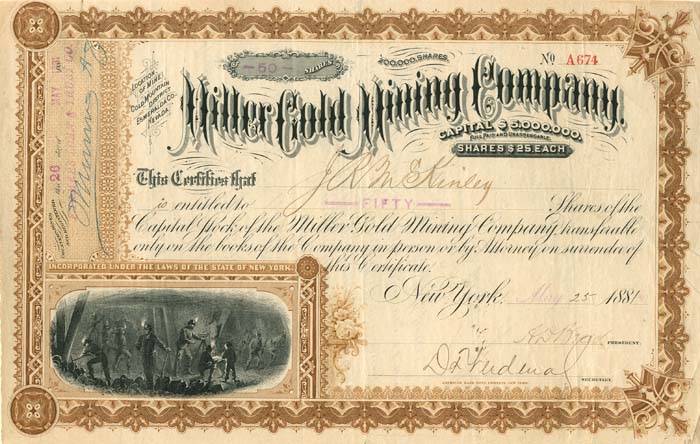 50 SHARES
200,000 SHARES
No A674
LOCATION OF MINE:
GOLD MOUNTAIN
DISTRICT
ESMERALDA CO.
NEVADA.
Miller Gold Mining Company.
CAPITAL $5,000,000.
FULL PAID AND UNASSESSABLE
SHARES $25. EACH
This Certifies that J R McKinley
is entitled to FIFTY Shares of the
Capital Stock of the Miller Gold Mining Company, transferable
only on the books of the Company in person or by Attorney on surrender of
this Certificate.
INCORPORATED UNDER THE LAWS OF THE STATE OF NEW YORK.
New York, May 25 1881
PRESIDENT.
SECRETARY.
AMERICAN BANK NOTE COMPANY, NEW YORK.